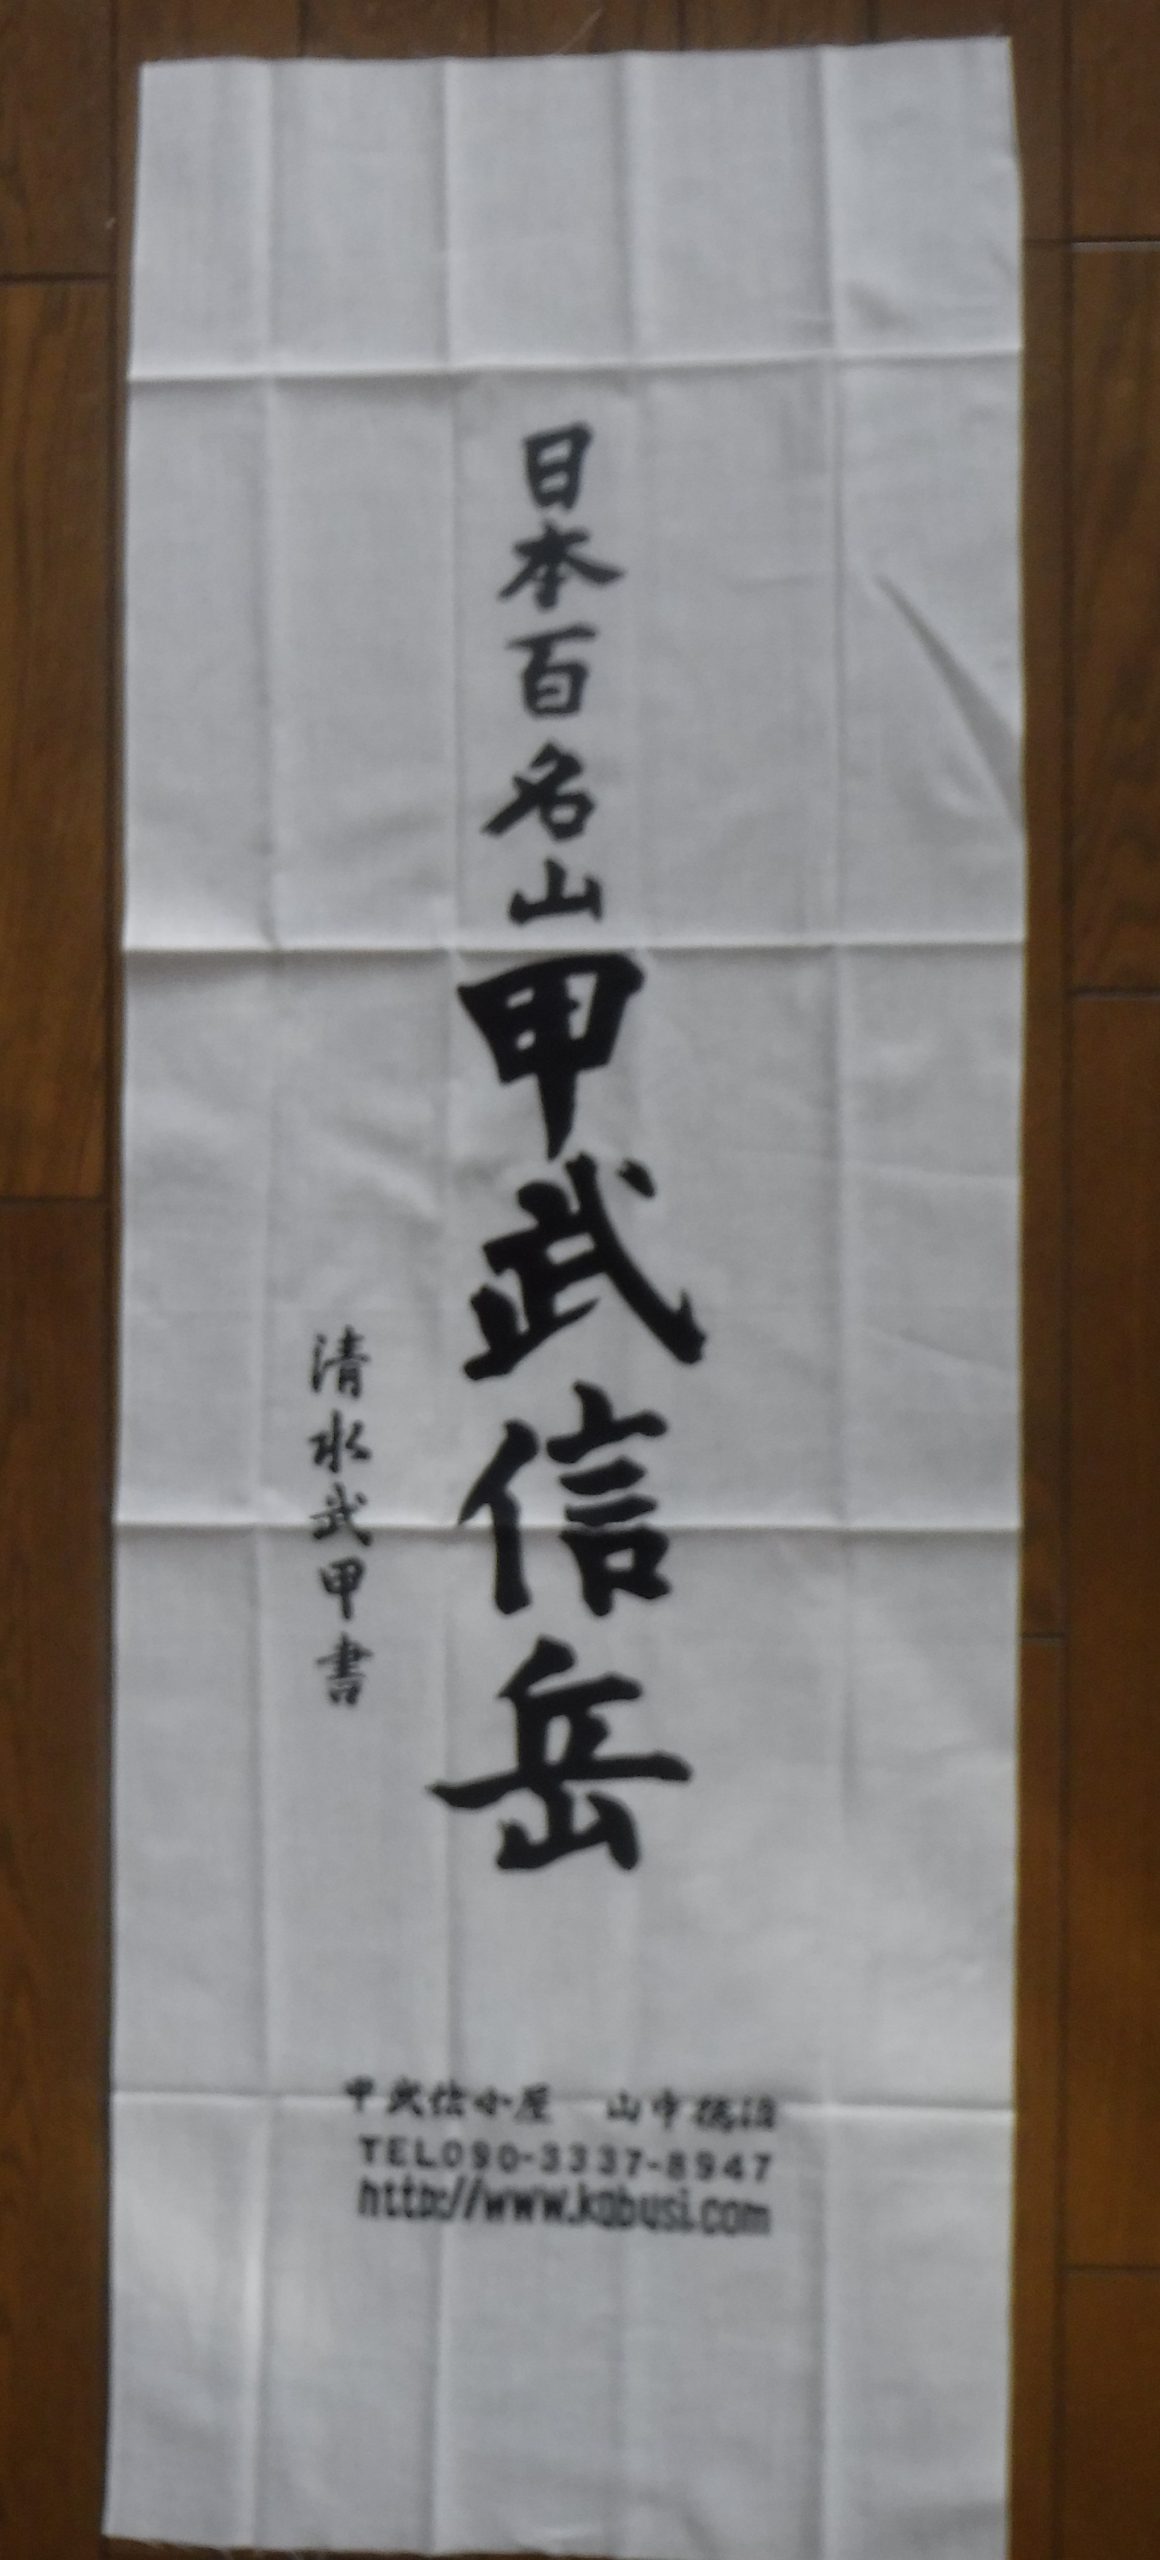 日本百名山甲武信岳
清水武甲書
甲武信小屋　山中徳治
TEL090-3337-8947
http://www.kobusi.com